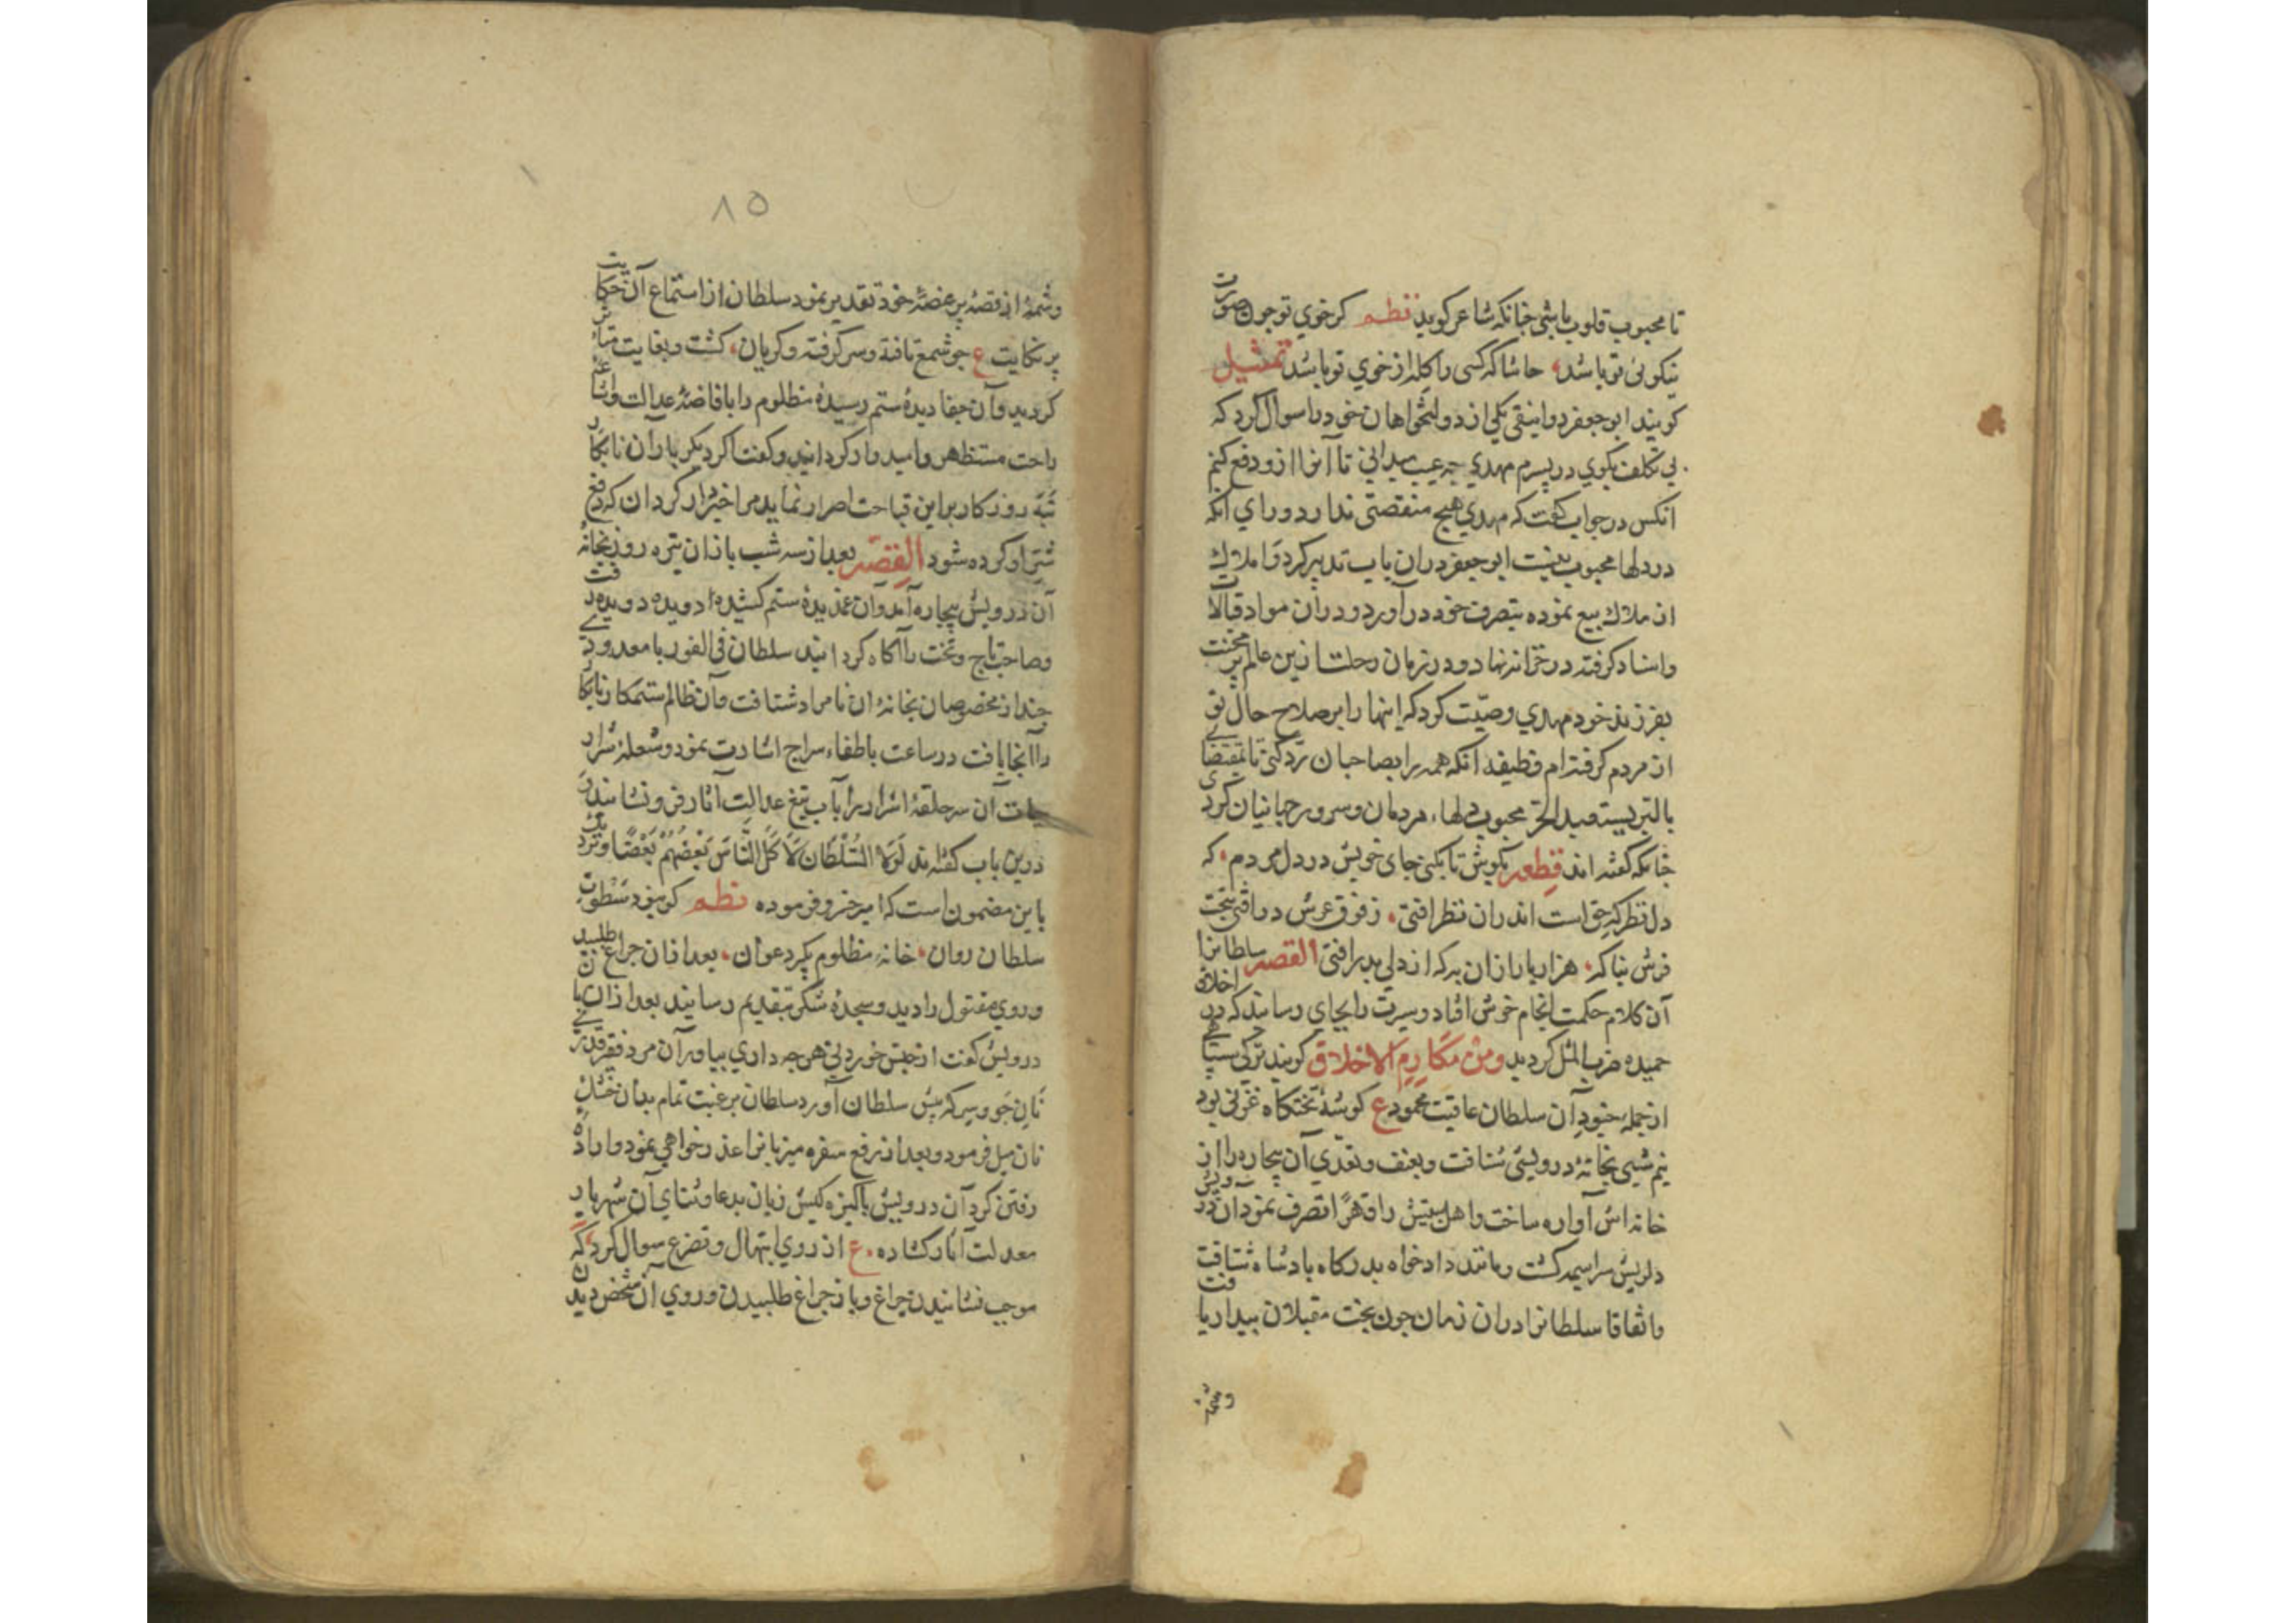 تا محبوب قلوب باشی چنانکه شاعر کوید نظم کر خوی تو چون صورت
نیکوئی تو باشد حاشا که کسی را کله از خوی تو باشد تمثیل
کویند ابو جعفر دوانیقی یکی از دولتخواهان خود را سوال کرد که
بی تکلف بکوی در پسرم مهدی چه عیب میدانی تا آنرا ازو دفع کنم
انکس در جواب کفت که مهدی هیچ منقصتی ندارد ورای انکه
در دلها محبوب نیست ابو جعفر دران باب تدبیر کرد و املاک
ان ملاک بیع نموده بتصرف خود در آورد و دران مواد قبالات
واسناد کرفته در خزانه نهاد و در زمان رحلت ازین عالم پر محنت
بفرزند خود مهدی وصیّت کرد که اینها را بر صلاح حال تو
از مردم کرفته ام وظیفه آنکه همه را بصاحبان ردّ کنی تا بمقتضای
بالبر یستعبد الحرّ محبوب دلهاء مردمان و سرور جهانیان کردی
چنانکه کفته اند قطعه بکوش تا بکنی جای خویش در دل مردم که
دل نظرکه حق است اندران نظر افتی ز فوق عرش در افتی بتخت
فرش بناکه هزار بار ازان به که از دلی بدر افتی القصه سلطانرا
آن کلام حکمت انجام خوش افتاد و سیرت را بجای رسانید که در اخلاق
حمیده ضرب المثل کردید ومن مکارم الاخلاق کویند ترکی سپاهی
از جمله جنود آن سلطان عاقبت محمود ع کوشهٔ تختکاه غزنی بود
نیم شبی بخانهٔ درویشی شتافت و بعنف و تعدّی آن بیچاره را از
خانه اش آواره ساخت و اهل بیتش را قهرًا تصرف نمود ان درویش
دلریش سراسیمه کشت و مانند دادخواه بدرکاه پادشاه شتافت
واتفاقا سلطانرا دران زمان چون بخت مقبلان بیدار یافت
وشمهٔ
٨٥
وشمهٔ از قصهٔ پر غصهٔ خود تقدیر نمود سلطان از استماع آن حکایت
پر نکایت ع چو شمع تافته و سر کرفته و کریان کشت و بغایت متاثر
کردید و آن جفا دیدهٔ ستم رسیدهٔ مظلوم را بافاضهٔ عدالت و اشاعهٔ
راحت مستظهر و امیدوار کردانید و کفت اکر دیکر بار آن نابکار
تبه روزکار بر این قباحت اصرار نماید مرا خبردار کردان که دفع
شرّ او کرده شود القصه بعد از سه شب باز ان تیره روز بخانهٔ
آن درویش بیچاره آمد وان غمدیدهٔ ستم کشیده از دویده دوید و رفت
وصاحب تاج و تخت را آکاه کردانید سلطان فی الفور با معدودی
چند از مخصوصان بخانهٔ ان نامراد شتافت و آن ظالم ستمکار نابکار
را آنجا یافت در ساعت باطفاء سراج اشارت نمود و شعلهٔ شرار
حیات آن سر حلقهٔ اشرار را بآب تیغ عدالت آثار فرو نشانید
درین باب کفته اند لولا السلطان لاکل الناس بعضهم بعضا و نزدیک
باین مضمون است که امیر خسرو فرموده نظم کر نبود سطوت
سلطان روان خانهٔ مظلوم بکیرد عوان بعد ازان چراغ طلبید
و روی مقتول را دید و سجدهٔ شکر بتقدیم رسانید بعد ازان با
درویش کفت از جنس خوردنی هر چه داری بیاور آن مرد فقیر قدری
نان جو و سرکه پیش سلطان آورد سلطان برغبت تمام بدان خشک
نان میل فرمود و بعد از رفع سفره میزبانرا عذر خواهی نمود و ارادهٔ
رفتن کرد آن درویش پاکیزه کیش زبان بدعا و ثنای آن شهریار
معدلت آثار کشاده ع از روی ابتهال و تضرع سوال کرد که
موجب نشانیدن چراغ و باز چراغ طلبیدن و روی آن شخص دیدن